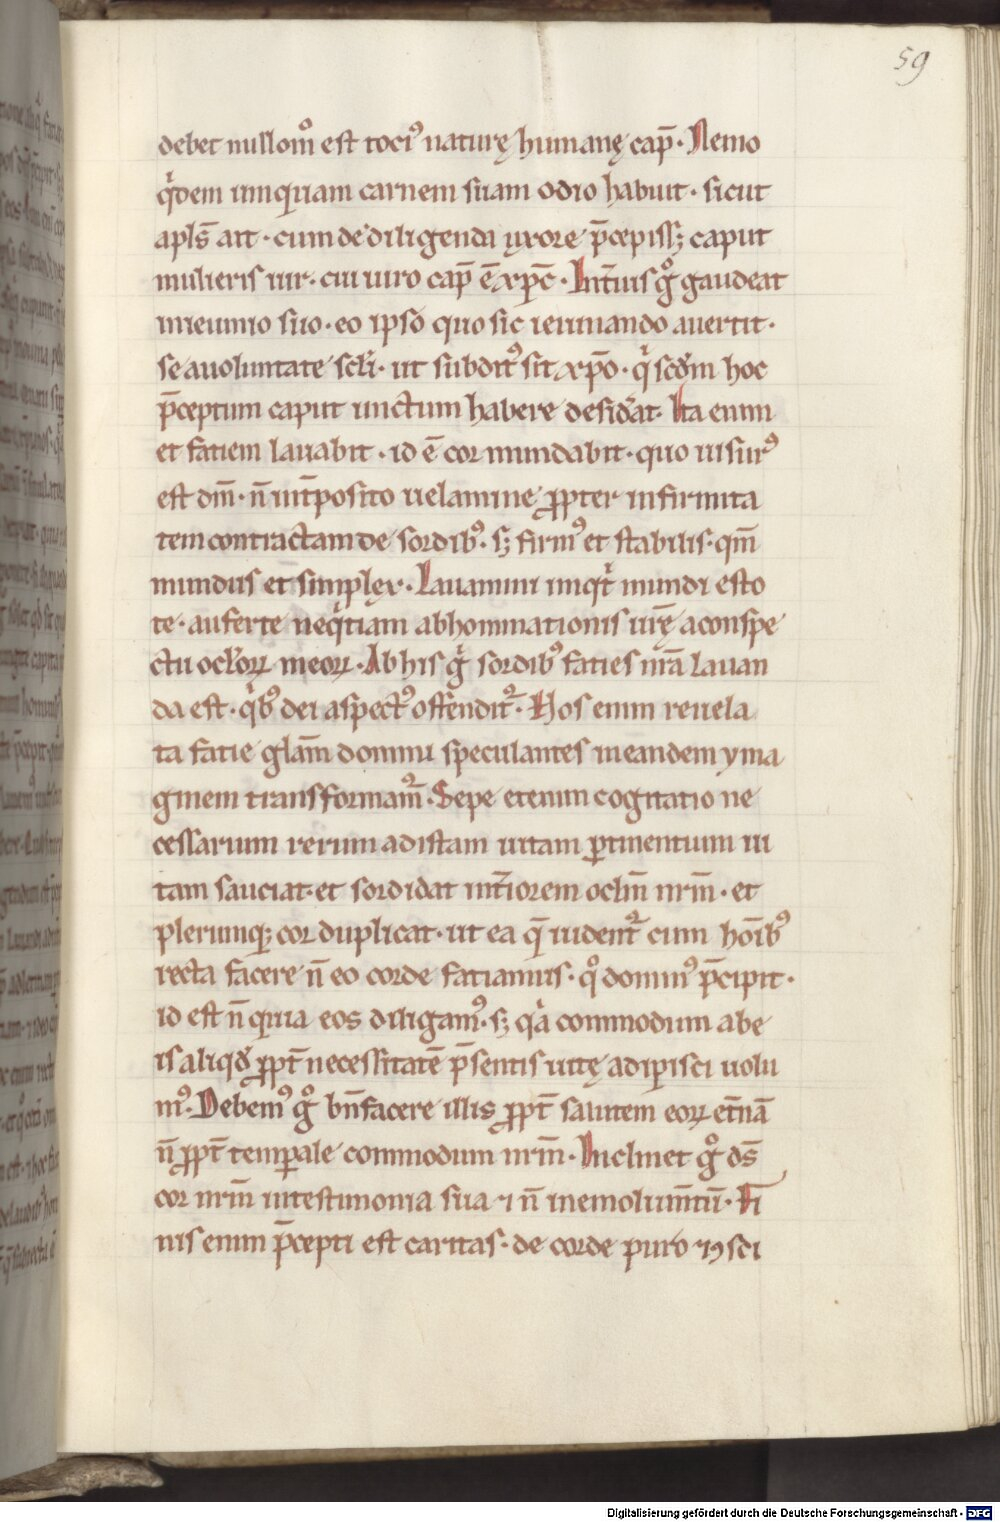 59
debet nullom̊ est toci᷒ naturę humanę cap̄. Nemo
qͥdem umquam carnem suam odio habuit. sicut
apls̄ ait. cum de diligenda uxore p̄cepiss; caput
mulieris uir. cui uiro cap̄ ē xp̄c. Int̄ius gͦ gaudeat
inieiunio suo. eo ipso quo sic ieiunando auertit.
se auoluntate sc̄li. ut subdit᷒ sit xp̄o. qͥ scd̄m hoc
p̄ceptum caput unctum habere desid̓at. Ita enim
et fatiem lauabit. id ē cor mundabit. quo uisur᷒
est dm̄. n̄ int̄posito uelamine ꝓpter infirmita
tem contractam de sordib᷒. s; firm᷒ et stabilis. qm̄
mundus et simplex. Lauamini inqͥt mundi esto
te. auferte neqͥtiam abhominationis ur̄ę aconspe
ctu oclo̓ꝝ meoꝝ. Ab his gͥ sordib᷒ faties nr̄a lauan
da est. qͥb᷒ dei aspect᷒ offendit᷑. Nos enim reuela
ta fatie glam̄ domini speculantes ineandem yma
ginem transformam᷑. Sepe etenim cogitatio ne
cessarium rerum adistam uitam ꝑtinentium ui
tam sauciat. et sordidat int̄iorem oclm̄ nrm̄. et
plerumq; cor duplicat. ut ea q̄ uident᷑ cum hōib᷒
recta facere n̄ eo corde fatiamus. qͦ domin᷒ p̄cipit.
id est n̄ quia eos diligam᷒. s; qͣ commodum abe
is aliqd̓ ꝓpt̄ necessitatē p̄sentis uitę adipisci uolu
m᷒. Debem᷒ gͦ bn̄facere illis ꝓpt̄ salutem eoꝝ et̄nā
n̄ ꝓpt̄ temꝑale commodum nrm̄. Inclinet gͦ ds̄
cor nrm̄ intestimonia sua ⁊ n̄ inemolum̄tū. Fi
nis enim p̄cepti est caritas. de corde puro ⁊ ꝯsci
Digitalisierung gefördert durch die Deutsche Forschungsgemeinschaft - DFG